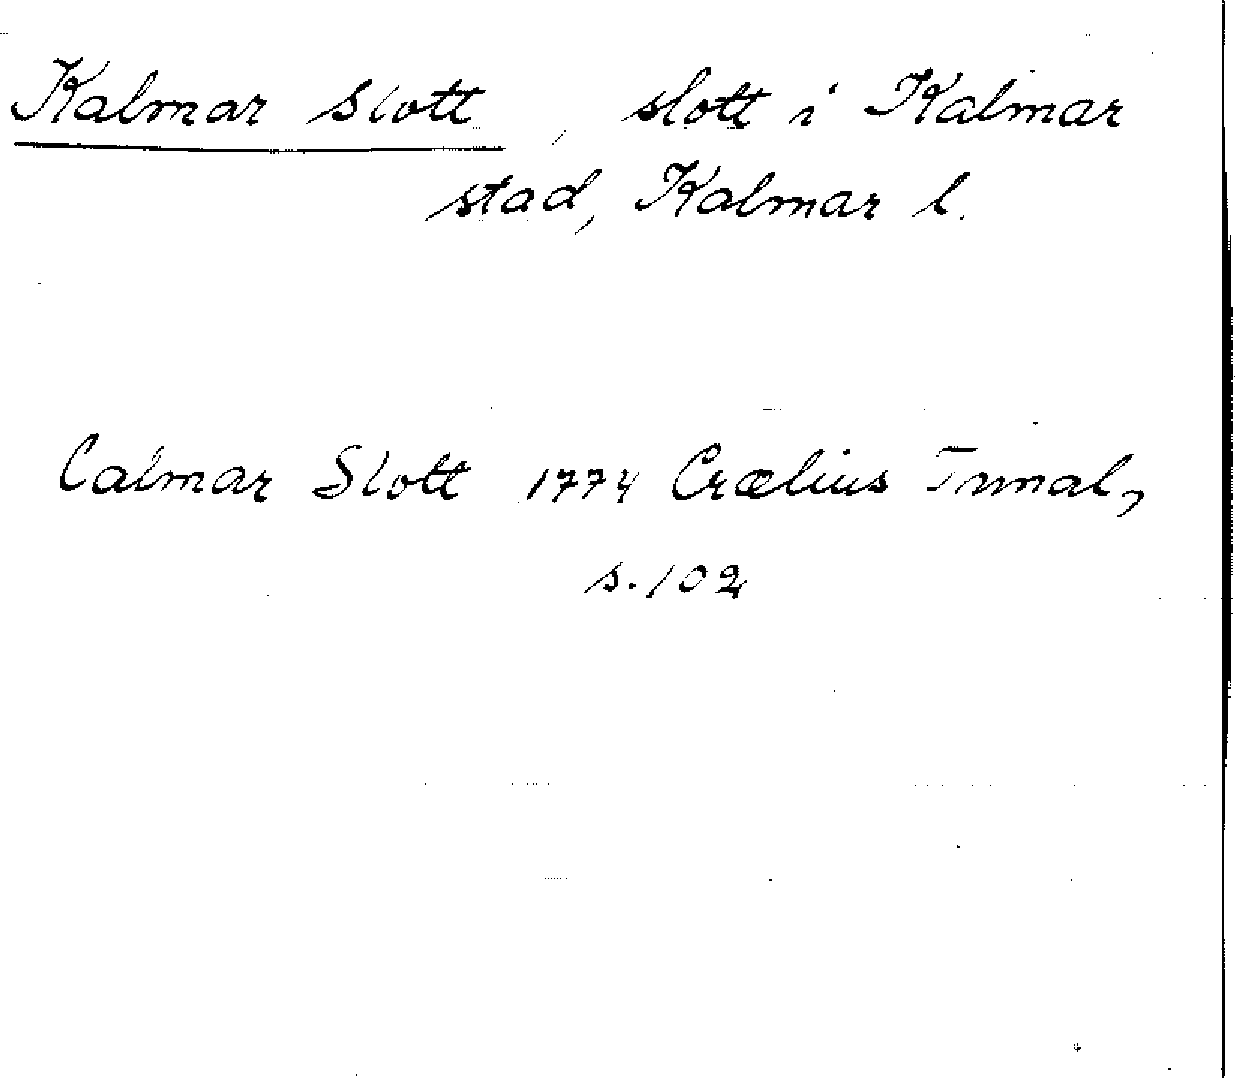 Kalmar Slott, slott i Kalmar
stad, Kalmar l.
Calmar Slott 1774 Crælius Tunal,
s. 102